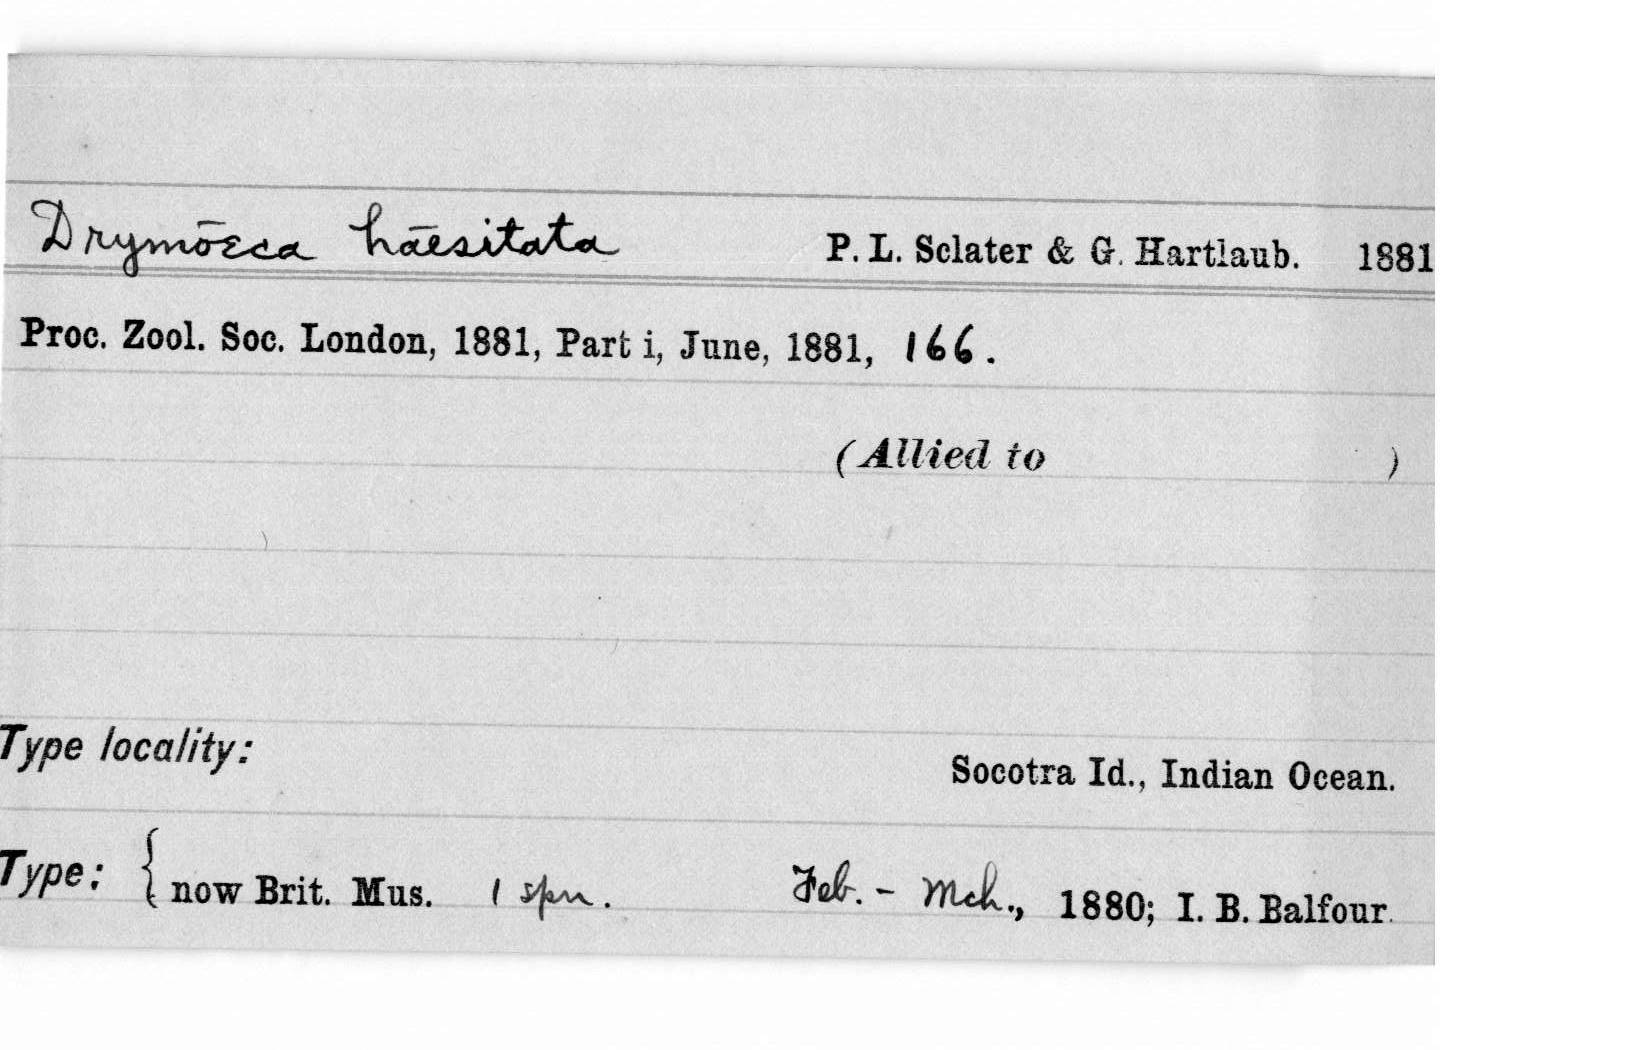 Drymōeca hāesitata P. L. Sclater & G. Hartlaub. 1881
Proc. Zool. Soc. London, 1881, Part i, June, 1881, 166.
(Allied to )
Type locality:
Socotra Id., Indian Ocean.
Type: { now Brit. Mus. 1 spn. Feb. - Mch., 1880; I. B. Balfour.